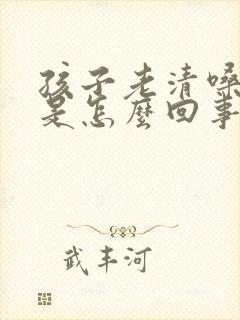 孩子老清嗓
是怎麽回事
武丰河